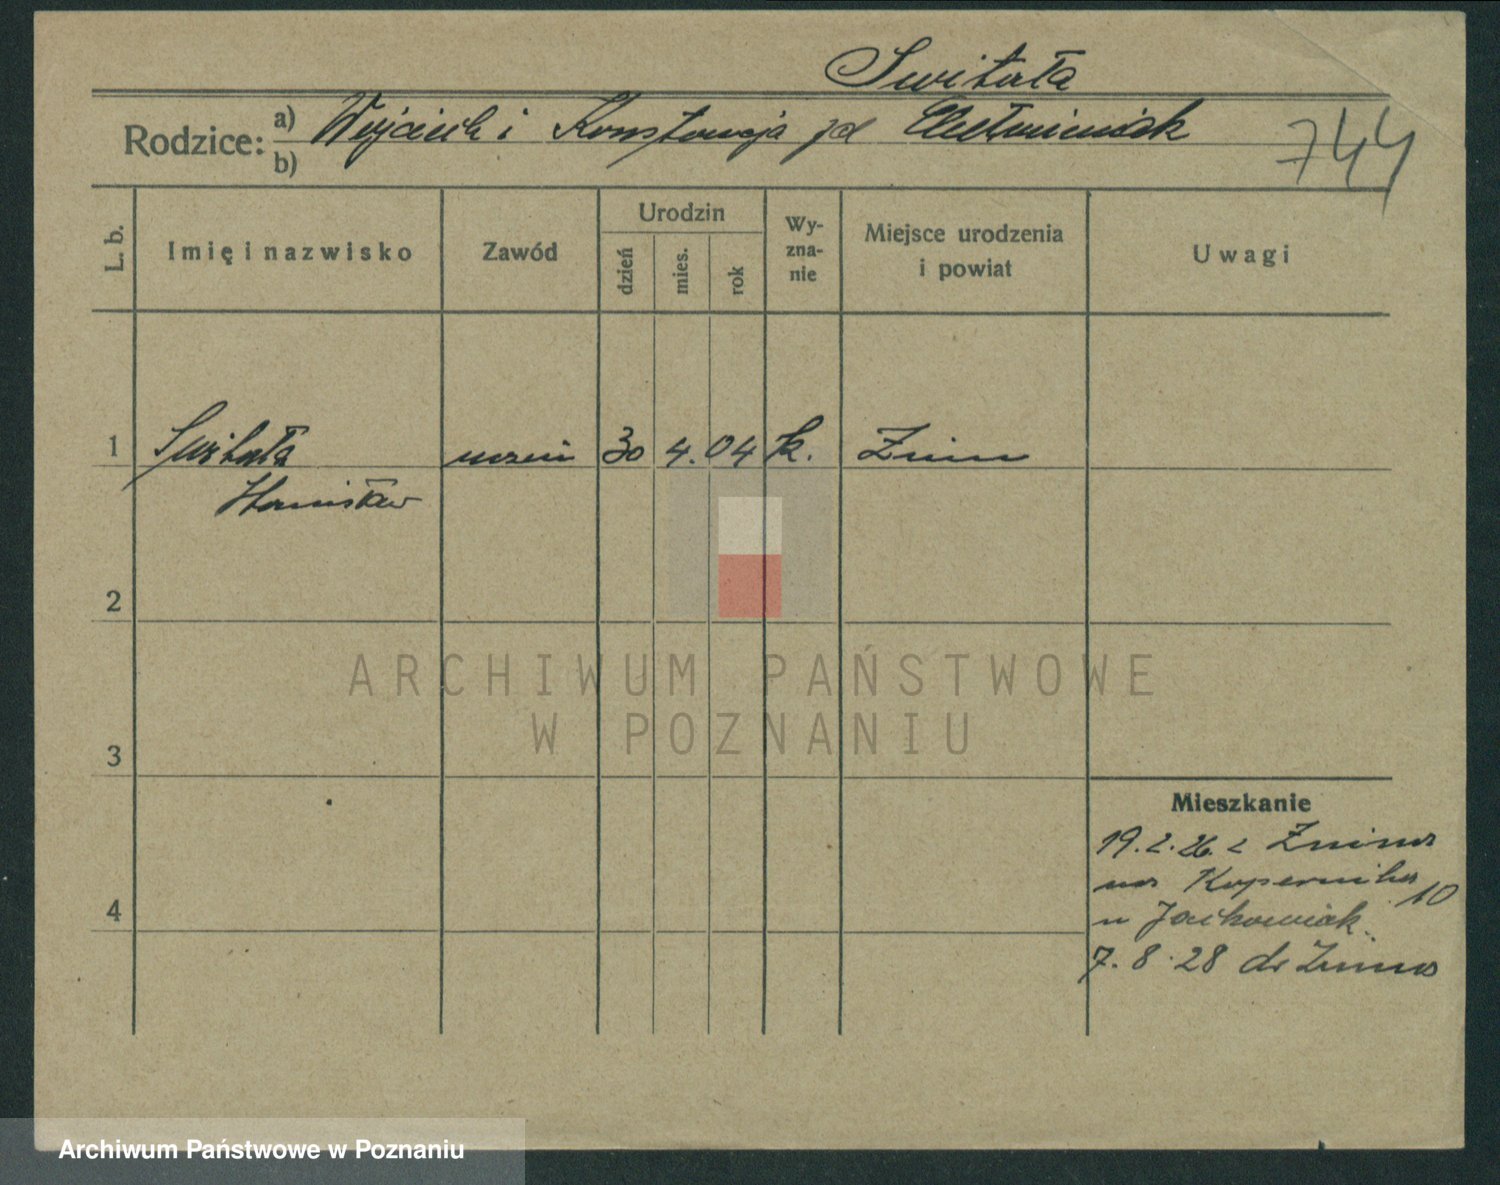 Switała
Rodzice: a) Wojciech i Konstancja zd Chełminiak
b)
744
L. b.
Imię i nazwisko
Zawód
Urodzin
dzień
mies.
rok
Wy-
zna-
nie
Miejsce urodzenia
i powiat
Uwagi
1 Switała uczeń 30 4. 04 k. Żnin
Stanisław
2
3
4
Mieszkanie
19.2.26. z Żnina
na Kopernika 10
u Jackowiak.
7.8.28 do Żnina
ARCHIWUM PAŃSTWOWE
W POZNANIU
Archiwum Państwowe w Poznaniu